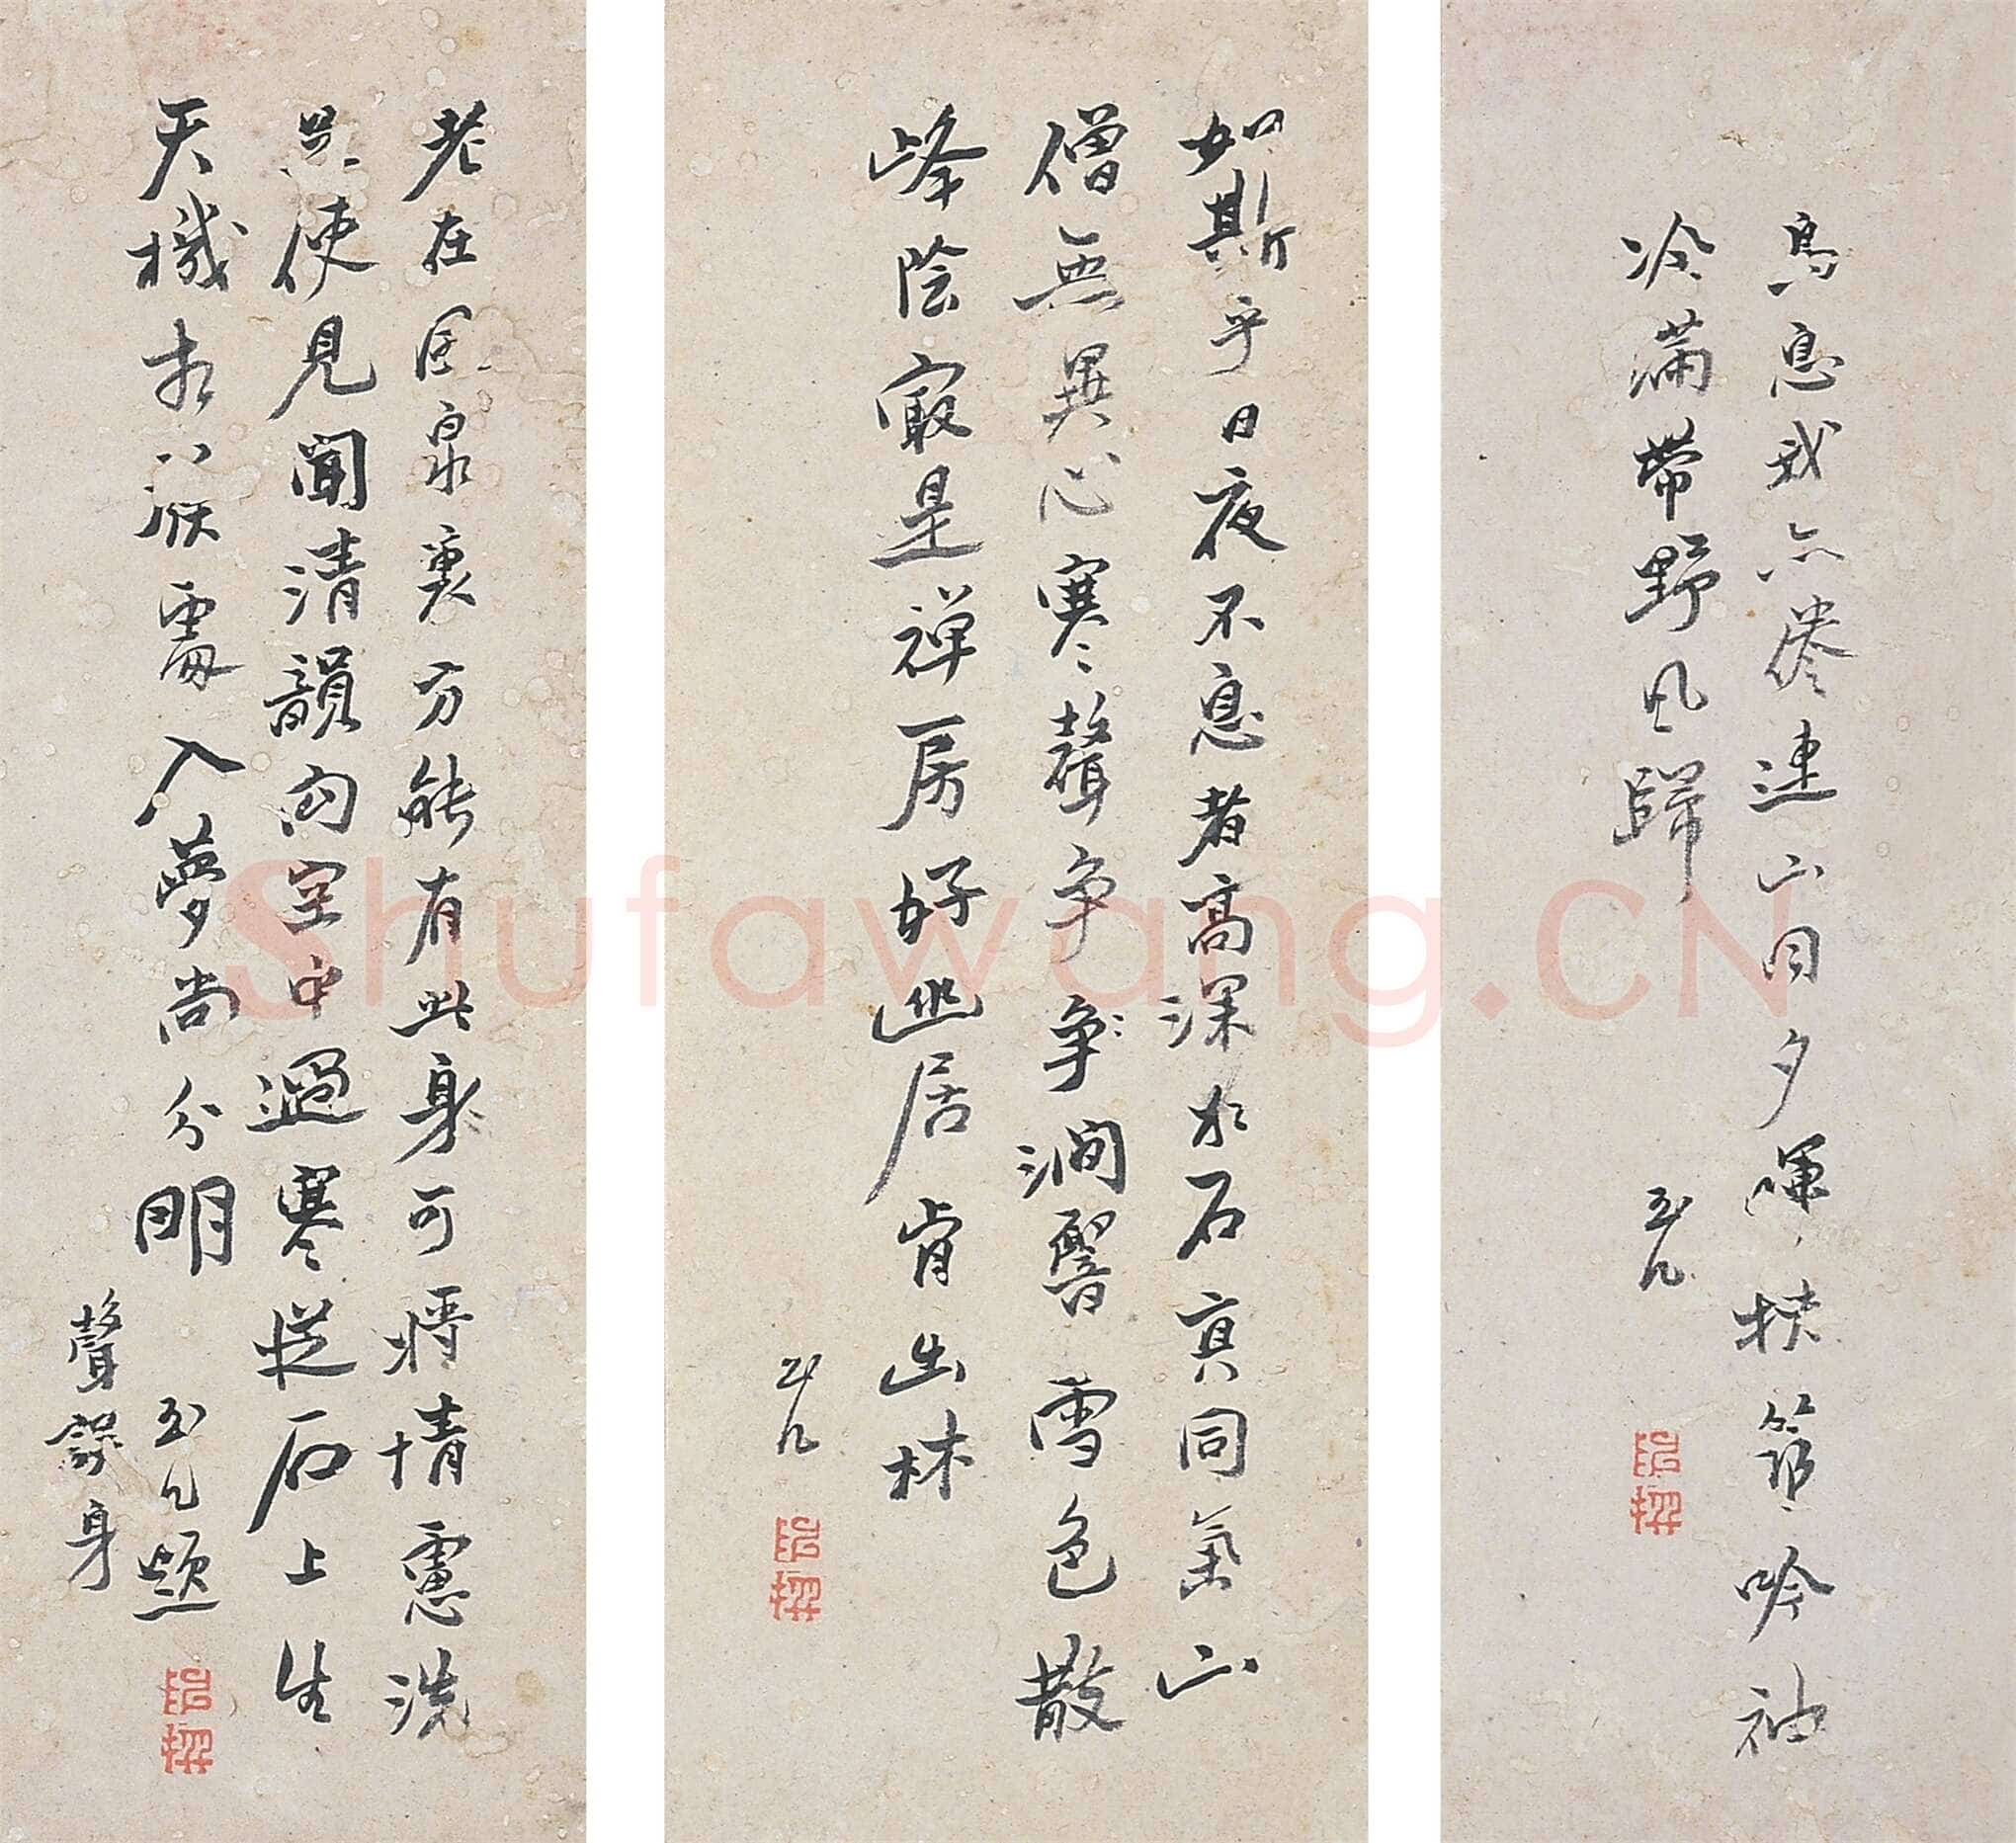 鳥息我亦倦連山日夕暉扶筇吟袖
冷滿帶野風歸
玉几
如斯乎日夜不息者高深水石真同氣山
僧無異心寒聲爭爭澗響雪色散
峰陰㝡是禪房好幽居肯出林
玉几
老在風泉裏方能有此身可將情慮洗
使見聞清韻向空中過寒從石上生
天機相處入夢尚分明
玉几題
聲誤身
Shufawang.CN